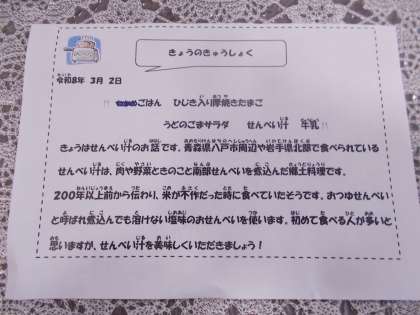 きょうのきゅうしょく
令和8年 3月 2日
ごはん ひじき入り厚焼きたまご
うどのごまサラダ せんべい汁 牛乳
きょうはせんべい汁のお話です。青森県八戸市周辺や岩手県北部で食べられている
せんべい汁は、肉や野菜ときのこと南部せんべいを煮込んだ郷土料理です。
200年以上前から伝わり、米が不作だった時に食べていたそうです。おつゆせんべい
と呼ばれ煮込んでも溶けない塩味のおせんべいを使います。初めて食べる人が多いと
思いますが、せんべい汁を美味しくいただきましょう！